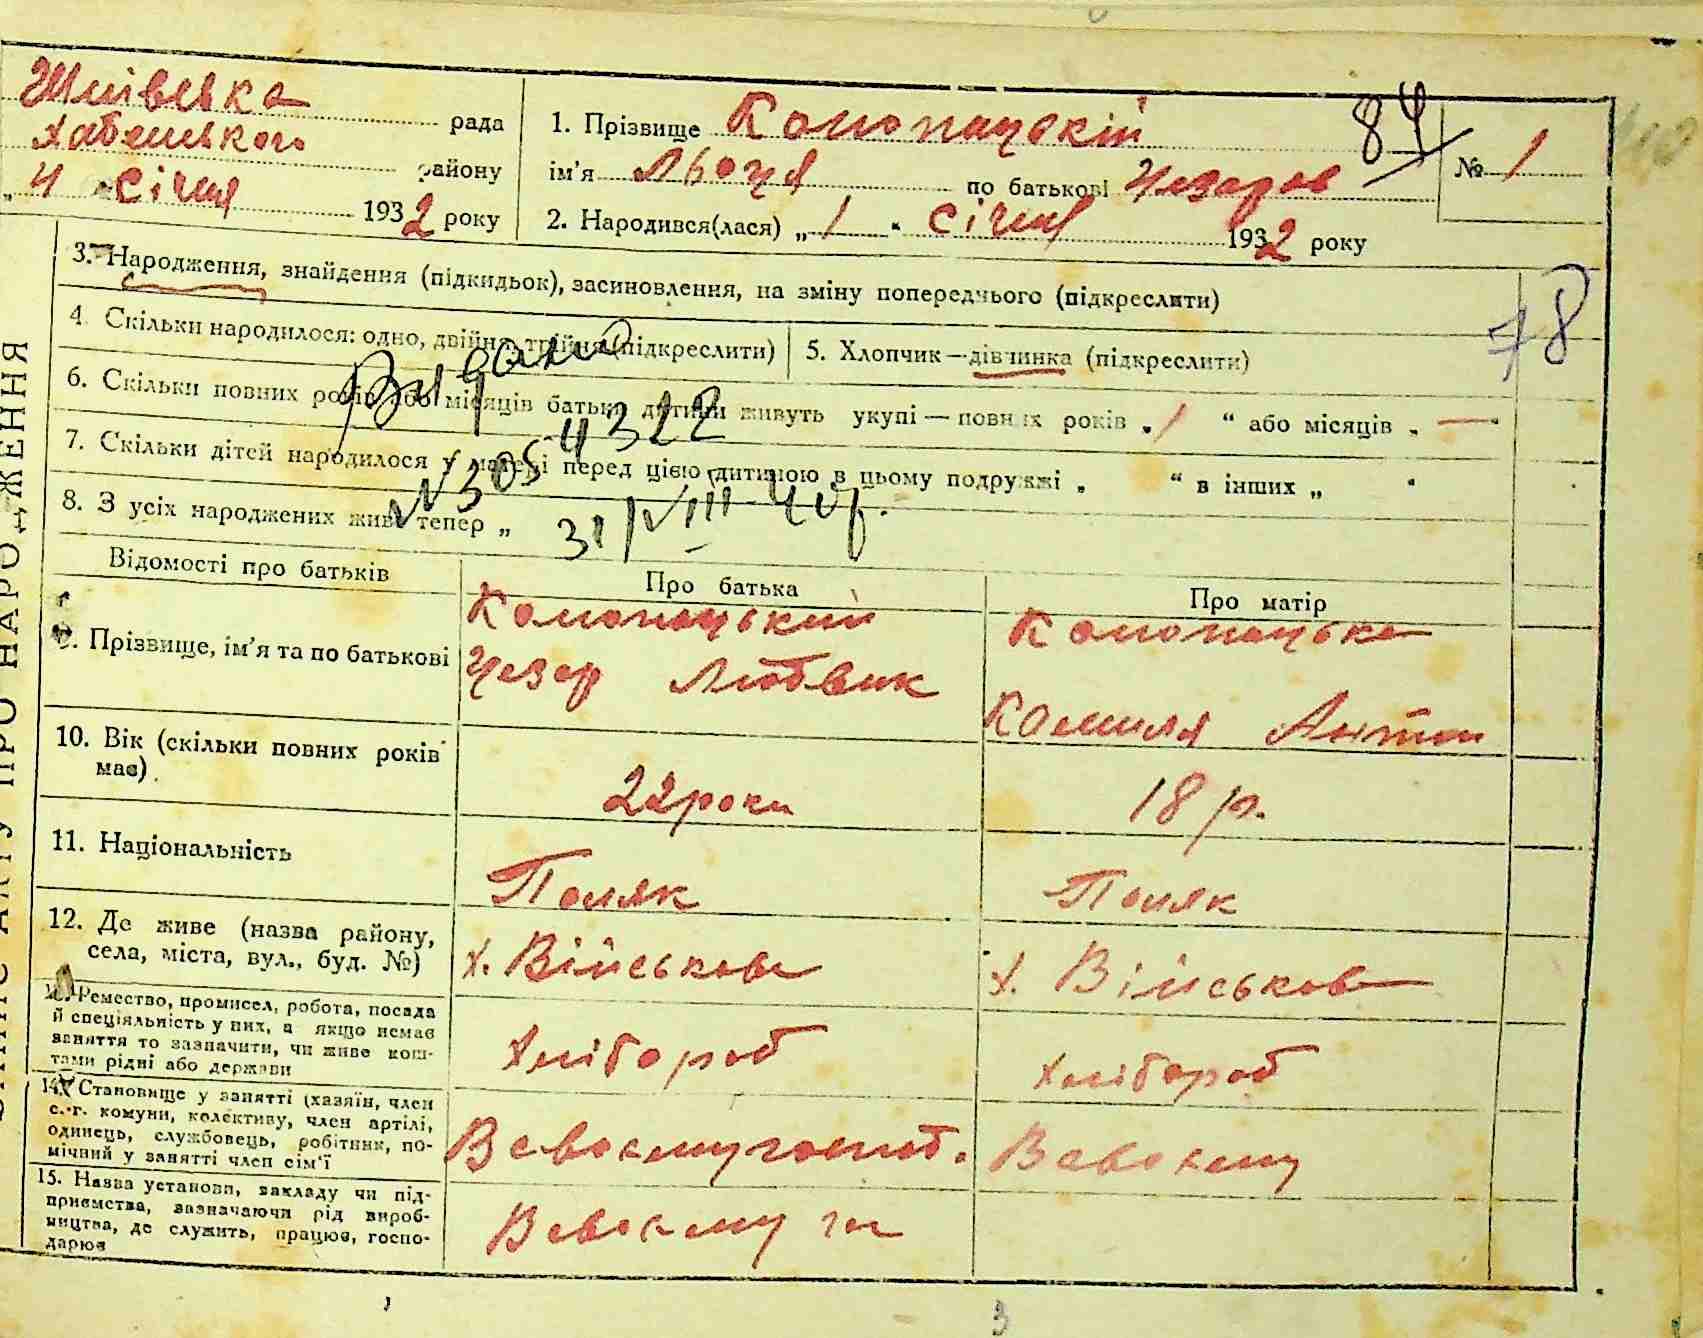 рада
Хабенського
району
4 січня 1932 року
1. Прізвище Конопацькій
ім'я по батькові Цезаров
84
№ 1
2. Народився(лася) „1" січня 1932 року
3. Народження, знайдення (підкидьок), засиновлення, на зміну попереднього (підкреслити)
78
4. Скільки народилося: одно, двійня, трійня (підкреслити)
5. Хлопчик—дівчинка (підкреслити)
6. Скільки повних років або місяців батьки дитини живуть укупі — повних років „1 “ або місяців „ — “
7. Скільки дітей народилося у матері перед цією дитиною в цьому подружжі „ “ в інших „ “
8. З усіх народжених живі тепер „
Видано
№ 3054322
31/VIII 40р.
Відомості про батьків
Про батька
Про матір
9. Прізвище, ім'я та по батькові
Конопацький
Цезар Людвик
Конопацька
Камиля Антон
10. Вік (скільки повних років має).
22 роки
18 р.
11. Національність
Поляк
Поляк
12. Де живе (назва району, села, міста, вул., буд. №)
х. Військове
х. Військове
13. Ремество, промисел, робота, посада
й спеціяльність у них, а якщо немає
заняття то зазначити, чи живе кош-
тами рідні або держави
Хлібороб
Хлібороб
14. Становище у занятті (хазяїн, член
с.-г. комуни, колективу, член артілі,
одинець, службовець, робітник, по-
мічний у занятті член сім'ї
В свосму господ.
В свосму
15. Назва установи, закладу чи під-
приємства, зазначаючи рід вироб-
ництва, де служить, працює, госпо-
дарює
В свосму
ПРО НАРОДЖЕННЯ
3